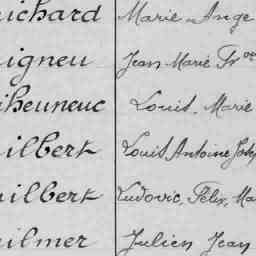 uichard Marie Ange
uigneu Jean Marie Fr
iheuneuc Louis Marie
uilbert Louis Antoine Jos
uilbert Ludovic, Félix, Ma
uilmer Julien Jean